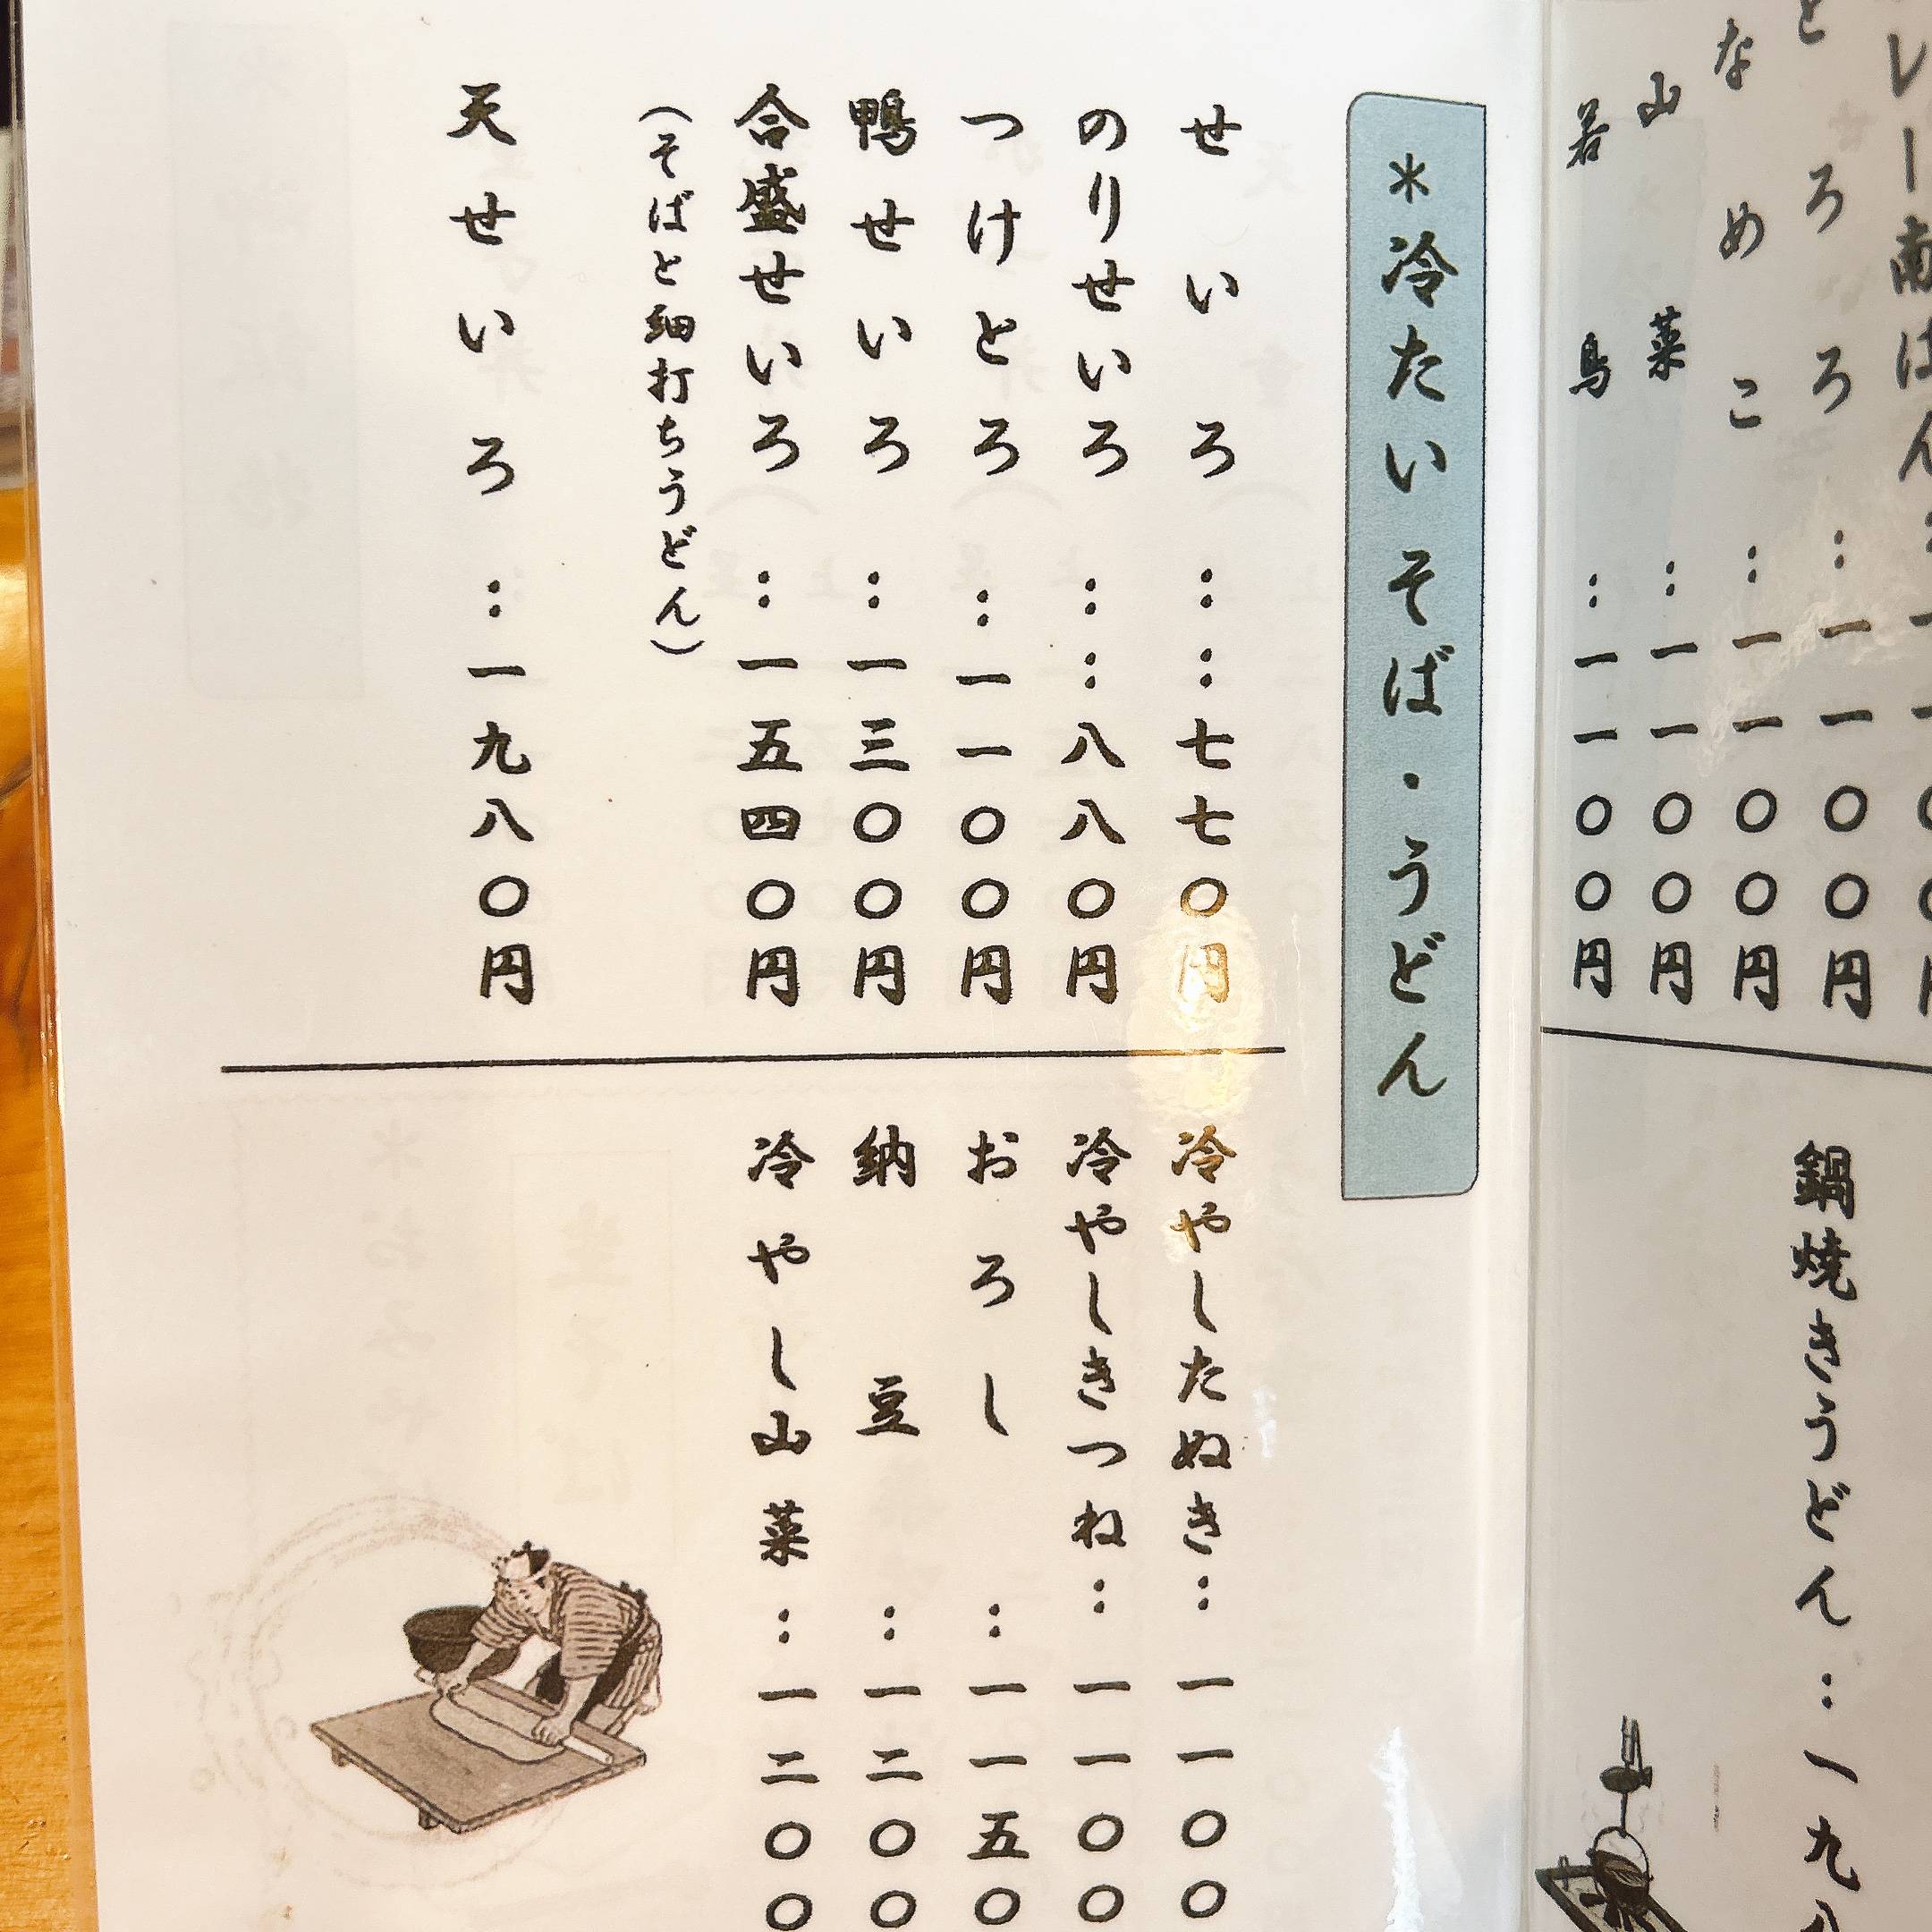 とろろ:一一〇〇円
なめこ:一一〇〇円
山菜:一一〇〇円
若鳥:一一〇〇円
鍋焼きうどん:一九八
*冷たいそば・うどん
せいろ::七七〇円
のりせいろ::八八〇円
つけとろ:一一〇〇円
鴨せいろ:一三〇〇円
合盛せいろ:一五四〇円
(そばと細打ちうどん)
天せいろ:一九八〇円
冷やしたぬき:一一〇〇
冷やしきつね:一一〇〇
おろし:一一五〇
納豆:一二〇〇
冷やし山菜:一二〇〇